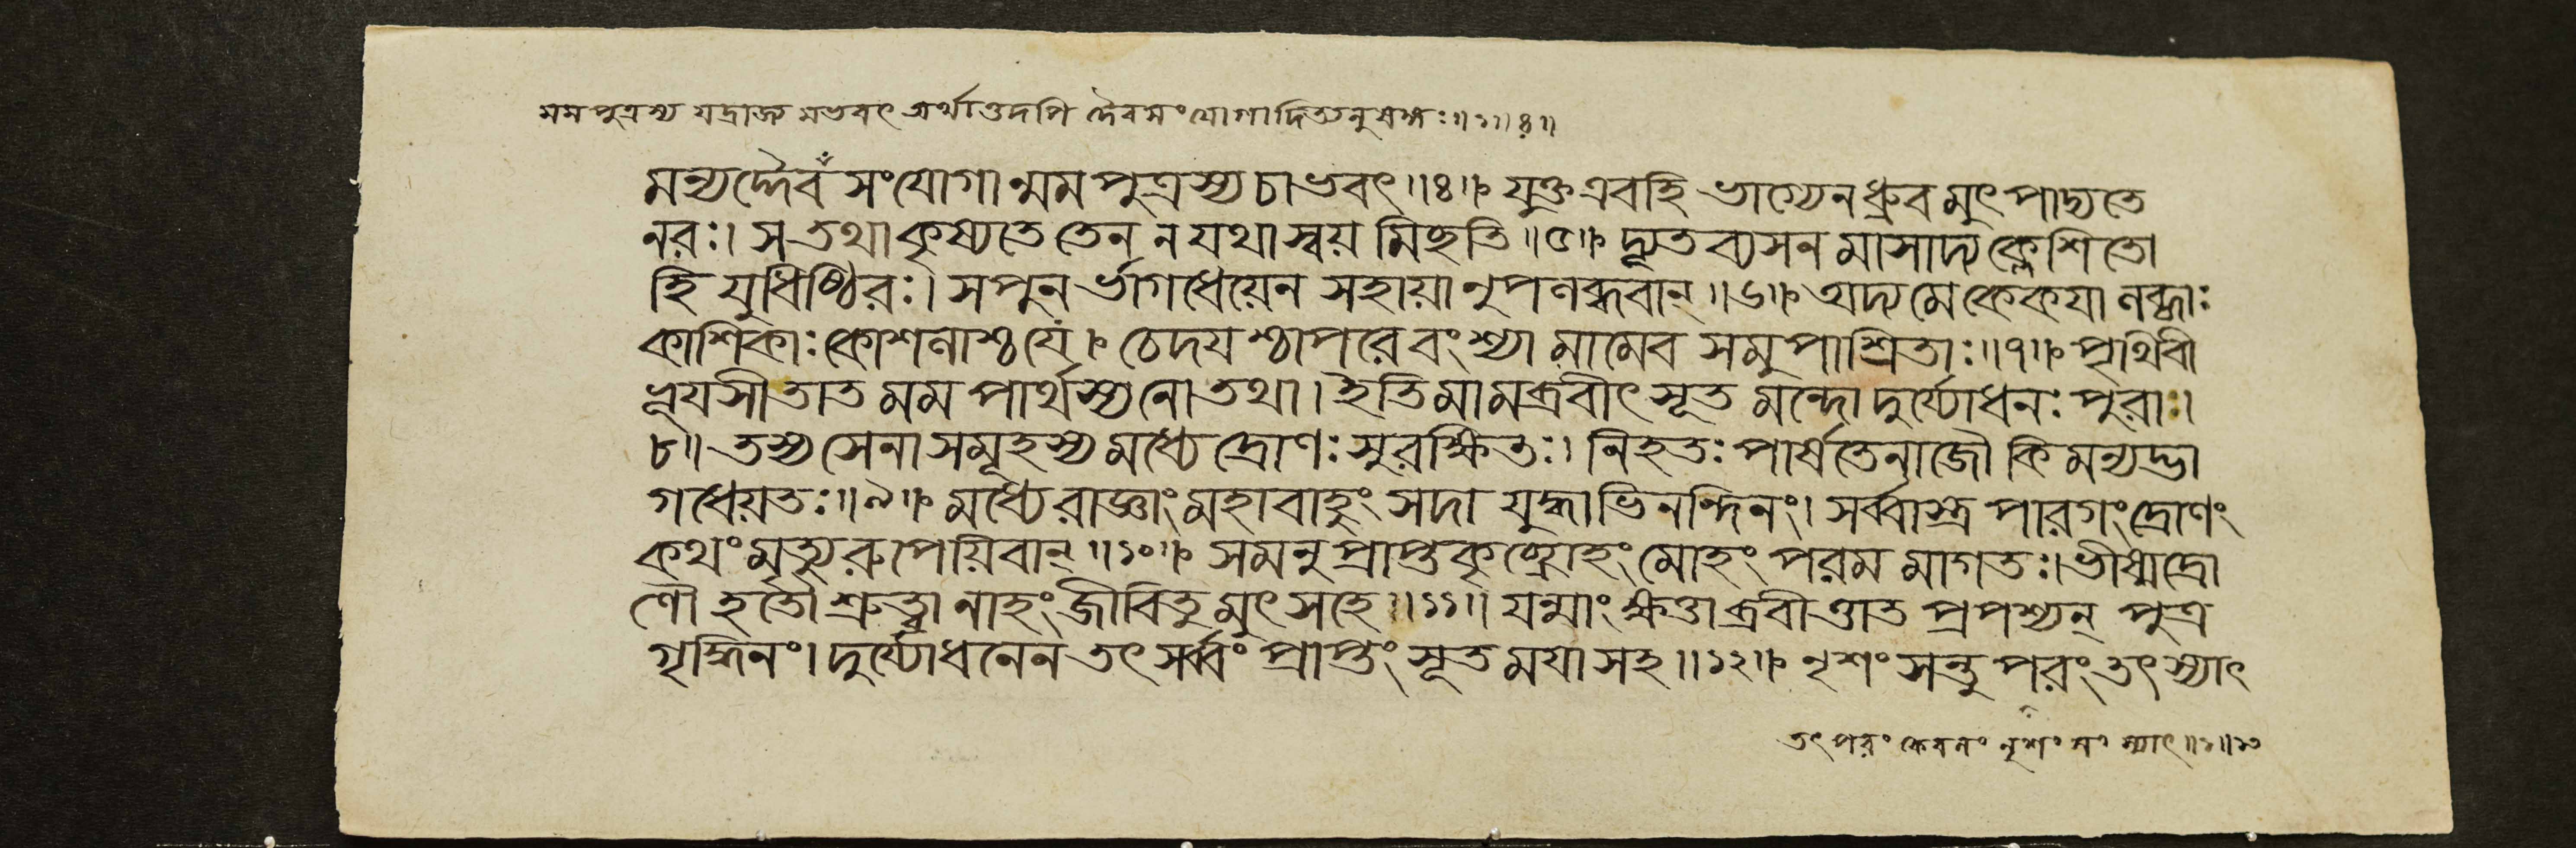 মম পুত্রস্য যদ্রাজ্য মভবৎ অর্থাত্তদপি দৈবসংযোগাদিত্যনুষঙ্গঃ॥১॥৪॥
মন্যদ্দৈবঁ সংযোগান্মম পুত্রস্য চাভবৎ॥৪॥ যুক্ত এবহি ভাগ্যেন ধ্রুব মুৎপাদ্যতে
নরঃ। স তথা কৃষ্যতে তেন ন যথা স্বয় মিচ্ছতি॥৫॥ দ্যূত ব্যসন মাসাদ্য ক্লেশিতো
হি যুধিষ্ঠিরঃ। স পুন র্ভাগধেয়েন সহায়ানুপলব্ধবান্॥৬॥ অদ্য মে কেকযা লব্ধাঃ
কাশিকাঃ কোশলাশ্চ যে। চেদয শ্চাপরে বংশ্যা মামেব সমুপাশ্রিতাঃ॥৭॥ পৃথিবী
ভূযসী তাত মম পার্থস্য নো তথা। ইতি মামব্রবীৎ সূত মন্দো দুর্য্যোধনঃ পুরাঃ।
৮॥ তস্য সেনা সমূহস্য মধ্যে দ্রোণঃ সুরক্ষিতঃ। নিহতঃ পার্ষতেনাজৌ কি মন্যদ্ভা
গধেয়তঃ॥৯॥ মধ্যে রাজ্ঞাং মহাবাহুং সদা যুদ্ধাভিনন্দিনং। সর্ব্বাস্ত্র পারগং দ্রোণং
কথং মৃত্যু রুপেয়িবান্॥১০॥ সমনুপ্রাপ্তকৃচ্ছ্রোহং মোহং পরম মাগতঃ। ভীষ্মদ্রো
ণৌ হতৌ শ্রুত্বা নাহং জীবিতু মুৎসহে॥১১॥ যন্মাং ক্ষত্তাব্রবীত্তাত প্রপশ্যন্ পুত্র
গৃদ্ধিনং। দুর্য্যোধনেন তৎ সর্ব্বং প্রাপ্তং সূত ময়া সহ॥১২॥ নৃশংসন্তু পরং তৎ স্যাৎ
তৎ পরং কেবলং নৃশংসং স্যাৎ॥১॥১৩